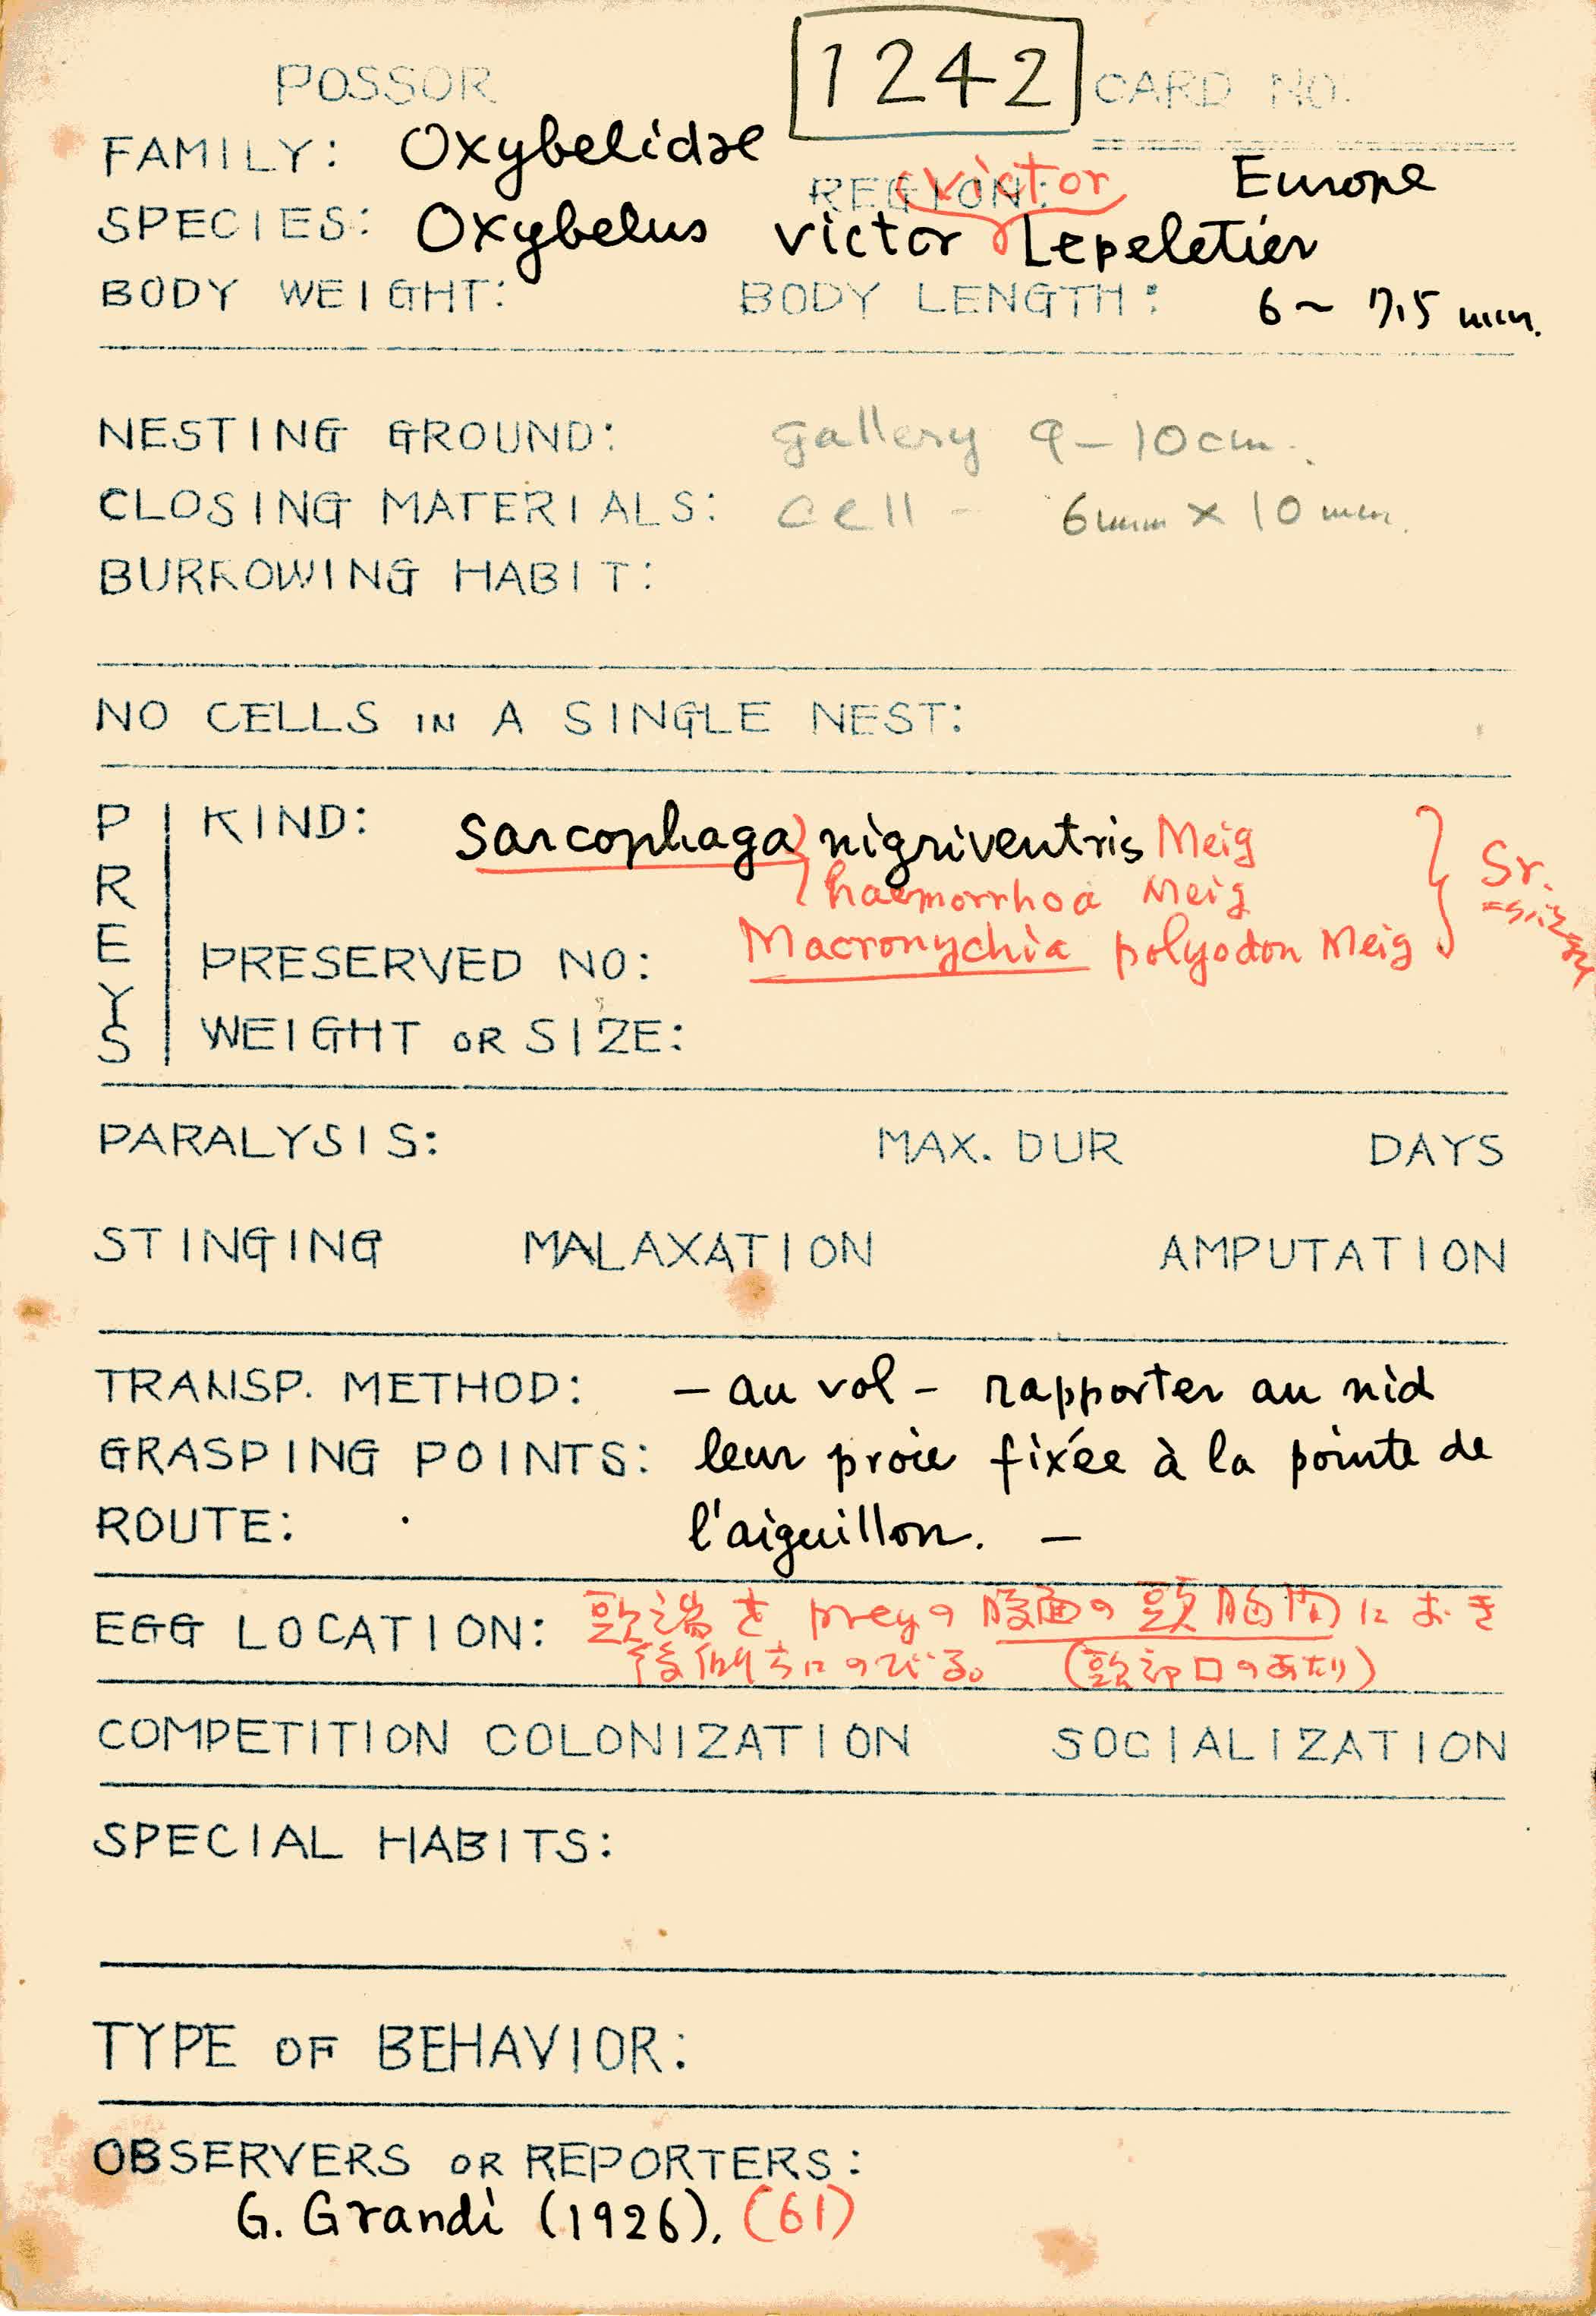 POSSOR 1242 CARD NO.
FAMILY: Oxybelidae
REGION: Europe
(victor)
SPECIES: Oxybelus victor Lepeletier
BODY WEIGHT: BODY LENGTH: 6~7.5 mm.
NESTING GROUND: gallery 9-10cm.
CLOSING MATERIALS: cell - 6mm × 10 mm.
BURROWING HABIT:
NO CELLS IN A SINGLE NEST:
PREYS
KIND: Sarcophaga nigriventris Meig
haemorrhoa Meig
Macronychia polyodon Meig
Sr.
PRESERVED NO:
WEIGHT OR SIZE:
PARALYSIS: MAX. DUR DAYS
STINGING MALAXATION AMPUTATION
TRANSP. METHOD: - au vol - rapporter au nid
GRASPING POINTS: leur proie fixée à la pointe de
ROUTE: l'aiguillon. -
EGG LOCATION: 頭端を preyの腹面の頭胸間におき
後側方にのびる。 (頭部口のあたり)
COMPETITION COLONIZATION SOCIALIZATION
SPECIAL HABITS:
TYPE OF BEHAVIOR:
OBSERVERS OR REPORTERS:
G. Grandi (1926), (61)